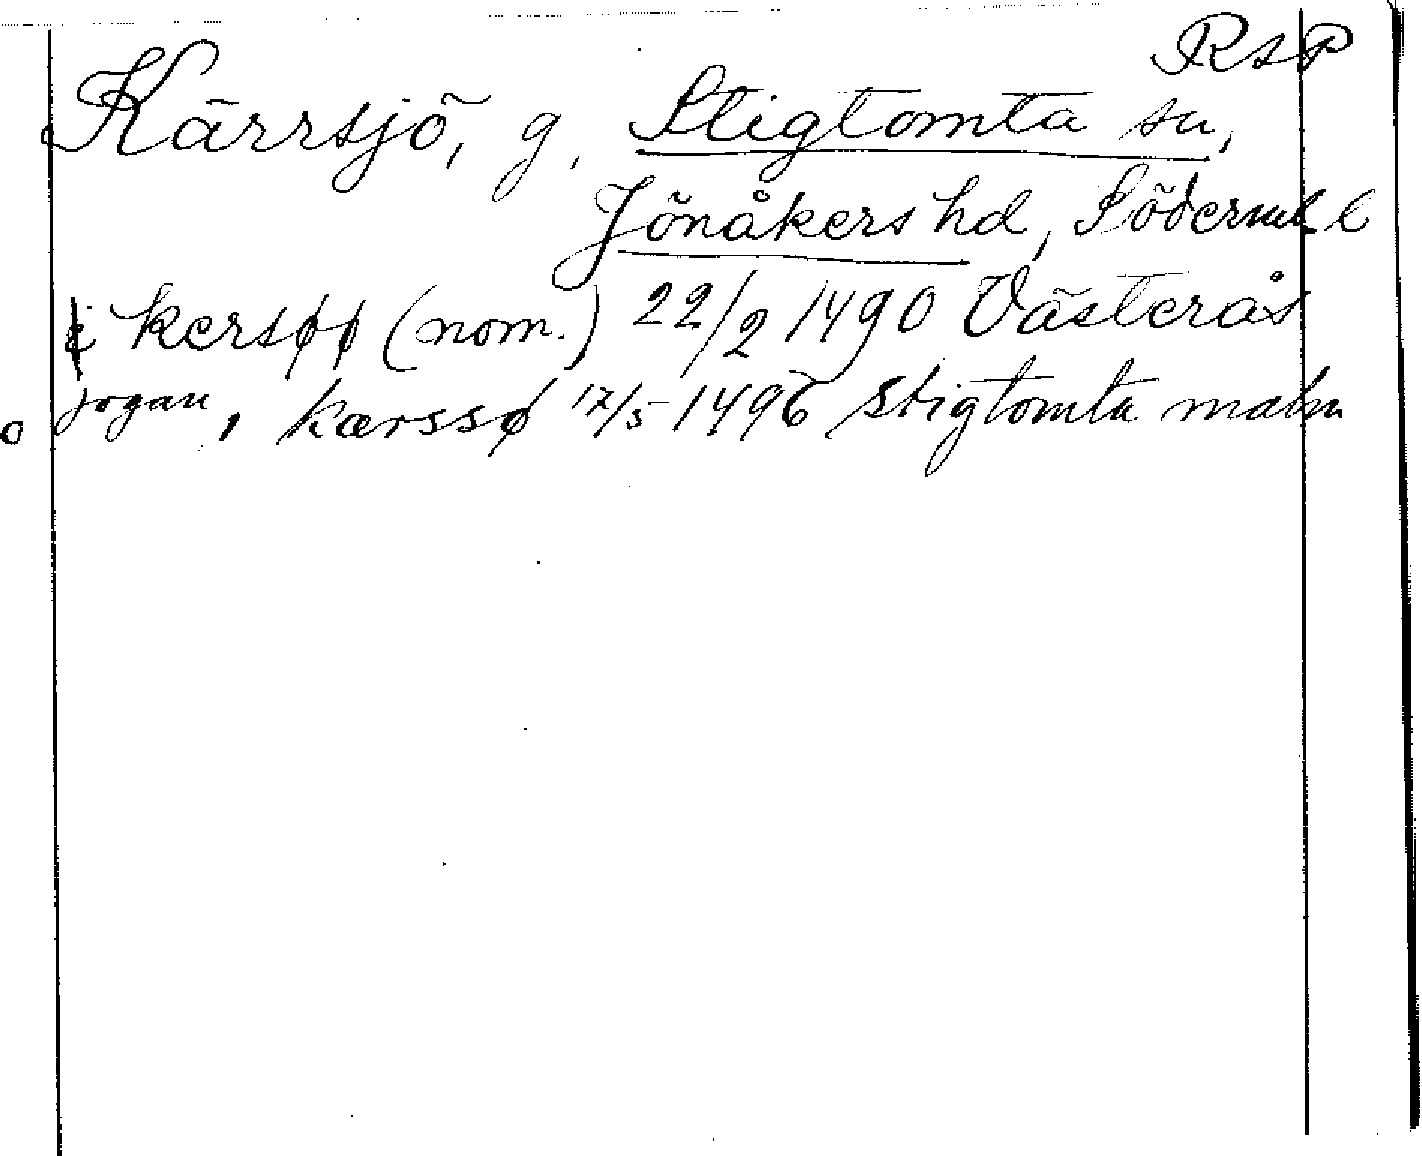 RSP
Kärrsjö, g, Stigtomta sn,
Jönåkers hd, Söderml l
kersøø (nom.) 22/2 1490 Västerås
jogan, kærssø 17/5 1496 Stigtomta